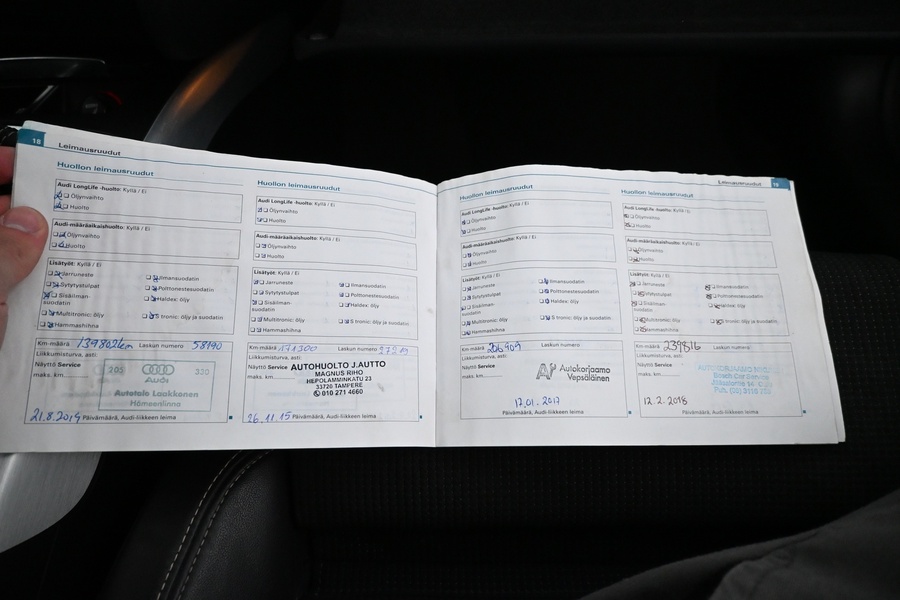 18 Leimausruudut
Huollon leimausruudut
Audi LongLife -huolto: Kyllä / Ei
Öljynvaihto
Huolto
Audi-määräaikaishuolto: Kyllä / Ei
Öljynvaihto
Huolto
Lisätyöt: Kyllä / Ei
Jarruneste
Sytytystulpat
Sisäilman-
suodatin
Multitronic: öljy
Hammashihna
Ilmansuodatin
Polttonestesuodatin
Haldex: öljy
S tronic: öljy ja suodatin
Km-määrä 139802km Laskun numero 58190
Liikkumisturva, asti:
Näyttö Service
maks. km
205 320
Audi
Autotalo Laakkonen
Hämeenlinna
21.8.2014 Päivämäärä, Audi-liikkeen leima
Huollon leimausruudut
Audi LongLife -huolto: Kyllä / Ei
Öljynvaihto
Huolto
Audi-määräaikaishuolto: Kyllä / Ei
Öljynvaihto
Huolto
Lisätyöt: Kyllä / Ei
Jarruneste
Sytytystulpat
Sisäilman-
suodatin
Multitronic: öljy
Hammashihna
Ilmansuodatin
Polttonestesuodatin
Haldex: öljy
S tronic: öljy ja suodatin
Km-määrä 171300 Laskun numero
Liikkumisturva, asti:
Näyttö Service
maks. km
AUTOHUOLTO J.AUTTO
MAGNUS RIHO
HEPOLAMMINKATU 23
33720 TAMPERE
010 271 4660
26.11.15 Päivämäärä, Audi-liikkeen leima
Huollon leimausruudut
Audi LongLife -huolto: Kyllä / Ei
Öljynvaihto
Huolto
Audi-määräaikaishuolto: Kyllä / Ei
Öljynvaihto
Huolto
Lisätyöt: Kyllä / Ei
Jarruneste
Sytytystulpat
Sisäilman-
suodatin
Multitronic: öljy
Hammashihna
Ilmansuodatin
Polttonestesuodatin
Haldex: öljy
S tronic: öljy ja suodatin
Km-määrä Laskun numero
Liikkumisturva, asti:
Näyttö Service
maks. km
Autokorjaamo
Vepsäläinen
17.01.2017
Päivämäärä, Audi-liikkeen leima
Leimausruudut 19
Huollon leimausruudut
Audi LongLife -huolto: Kyllä / Ei
Öljynvaihto
Huolto
Audi-määräaikaishuolto: Kyllä / Ei
Öljynvaihto
Huolto
Lisätyöt: Kyllä / Ei
Jarruneste
Sytytystulpat
Sisäilman-
suodatin
Multitronic: öljy
Hammashihna
Ilmansuodatin
Polttonestesuodatin
Haldex: öljy
S tronic: öljy ja suodatin
Km-määrä 239816 Laskun numero
Liikkumisturva, asti:
Näyttö Service
maks. km
Bosch Car Service
12.2.2018
Päivämäärä, Audi-liikkeen leima